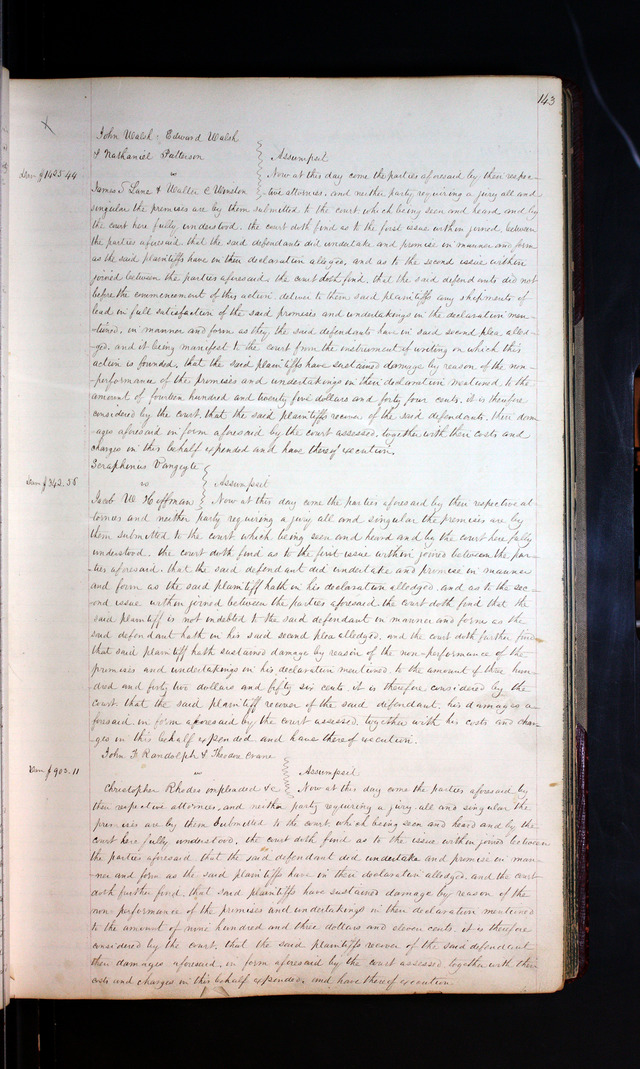 143
John Walsh, Edward Walsh
& Nathaniel Patterson
vs
Assumpsit
Dam $1425.44
Now at this day come the parties aforesaid by their respec-
James S Lane & Walter C Winston
tive attornies, and neither party requiring a jury all and
singular the premises are by them submitted to the court which being seen and heard and by
the court here fully understood, the court doth find as to the first issue within joined between
the parties aforesaid, that the said defendants did undertake and promise in manner and form
as the said plaintiffs have in their declaration alleged, and as to the second issue within
joined between the parties aforesaid, the court doth find, that the said defendants did not
before the commencement of this action deliver to them said plaintiffs any shipments of
lead in full satisfaction of the said promises and undertakings in the declaration men-
-tioned, in manner and form as they the said defendants have in said second plea alled-
-ged, and it being manifest to the court from the instrument of writing on which this
action is founded, that the said plaintiffs have sustained damage by reason of the non-
-performance of the promises and undertakings in their declaration mentioned to the
amount of fourteen hundred and twenty five dollars and forty four cents, it is therefore
considered by the court, that the said plaintiffs recover of the said defendants, their dam-
-ages aforesaid in form aforesaid by the court assessed, together with their costs and
charges in this behalf expended and have thereof execution.
Seraphinus Vangeyte
vs
Assumpsit
Dam $342.56
Jacob W Hoffman
Now at this day come the parties aforesaid by their respective at-
tornies and neither party requiring a jury all and singular the premises are by
them submitted to the court which being seen and heard and by the court here fully
understood. the court doth find as to the first issue within joined between the par-
ties aforesaid, that the said defendant did undertake and promise in manner
and form as the said plaintiff hath in his declaration alledged, and as to the sec-
-ond issue within joined between the parties aforesaid the court doth find that the
said plaintiff is not indebted to the said defendant in manner and form as the
said defendant hath in his said second plea alledged, and the court doth further find
that said plaintiff hath sustained damage by reason of the non-performance of the
promises and undertakings in his declaration mentioned to the amount of three hun-
dred and forty two dollars and fifty six cents, it is therefore considered by the
court that the said plaintiff recover of the said defendant, his damages a-
foresaid in form aforesaid by the court assessed, together with his costs and char-
ges in this behalf expended and have thereof execution.
John F Randolph & Theodore Crane
vs
Assumpsit
Dam $903.11
Christopher Rhodes impleaded &c
Now at this day come the parties aforesaid by
their respective attornies, and neither party requiring a jury all and singular the
premises are by them submitted to the court which being seen and heard and by the
court here fully understood, the court doth find as to the issue within joined between
the parties aforesaid that the said defendant did undertake and promise in man-
ner and form as the said plaintiffs have in their declaration alledged, and the court
doth further find, that said plaintiffs have sustained damage by reason of the
non-performance of the promises and undertakings in their declaration mentioned
to the amount of nine hundred and three dollars and eleven cents, it is therefore
considered by the court, that the said plaintiffs recover of the said defendant
their damages aforesaid, in form aforesaid by the court assessed together with their
costs and charges in this behalf expended, and have thereof execution